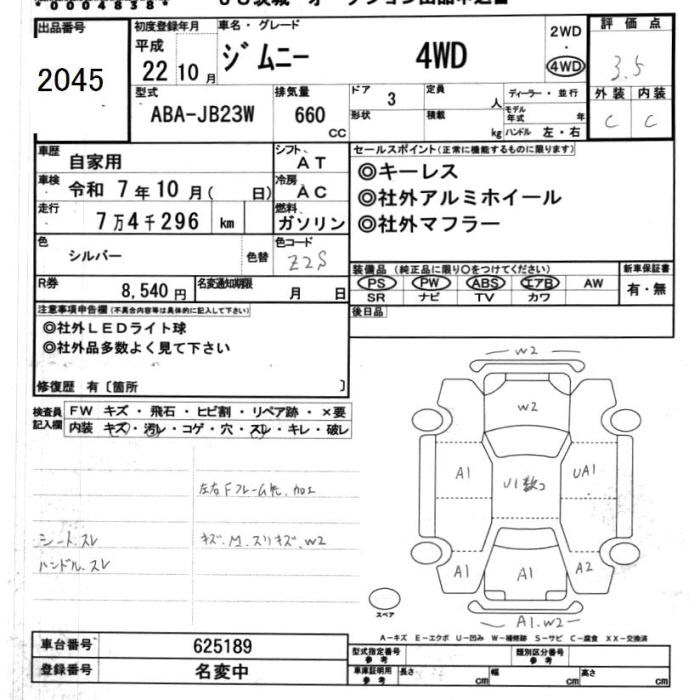 *00048384*
出品番号
2045
初度登録年月
平成
22年10月
車名・グレード
ジムニー 4WD
2WD
・
4WD
評価点
3.5
型式
ABA-JB23W
排気量
660
CC
ドア 3
形状
定員 人
積載 kg
ディーラー・並行
モデル年式 年
ハンドル 左・右
外装 内装
C C
車歴 自家用
シフト AT
車検 令和 7年10月( 日)
冷房 AC
走行 7万4千296 km
燃料 ガソリン
色 シルバー 色替
色コード Z2S
R券 8,540円
名変通知期限 月 日
セールスポイント(正常に機能するものに限ります)
◎キーレス
◎社外アルミホイール
◎社外マフラー
装備品(純正品に限り○をつけてください)
PS PW ABS エアB AW
SR ナビ TV カワ
新車保証書
有・無
後日品
注意事項申告欄(不具合内容等は具体的に記入して下さい)
◎社外LEDライト球
◎社外品多数よく見て下さい
修復歴 有〔箇所 〕
検査員記入欄
FW キズ・飛石・ヒビ割・リペア跡・×要
内装 キズ・汚レ・コゲ・穴・スレ・キレ・破レ
左右Fフレーム先、加工
シート、スレ
キズ、M、スリキズ、W2
ハンドル、スレ
W2
W2
A1
U1数つ
UA1
A1
A1
A2
A1.W2
スペア
A-キズ E-エクボ U-凹み W-補修跡 S-サビ C-腐食 XX-交換済
車台番号 625189
登録番号 名変中
型式指定番号 参考
類別区分番号 参考
車庫証明用 参考
長さ cm
幅 cm
高さ cm